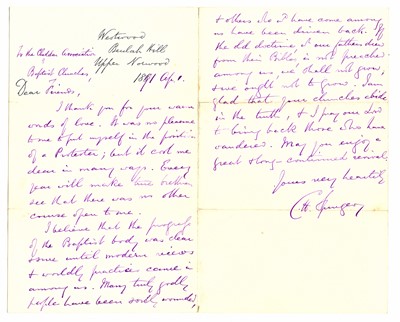 Westwood
Beulah Hill
Upper Norwood
1891 Ap. 1.
To the Chiltern Association
Baptist Churches,
Dear Friends,
I thank you for your warm
words of love. It was no pleasure
to me to find myself in the position
of a Protester; but it cost me
dear in many ways. Every
year will make true brethren
see that there was no other
course open to me.
I believe that the progress
of the Baptist body was clear
until modern views
& worldly practices came in
among us. Many truly godly
people have been sorely wounded,
& others who I have come among
us have been driven back. If
the old doctrine of our fathers drew
from their Bibles is not preached
among us, we shall not grow,
& we ought not to grow. I am
glad that your churches abide
in the truth, & I pray our Lord
to bring back those who have
wandered. May you enjoy a
great & long-continued revival,
Yours very heartily
C. H. Spurgeon